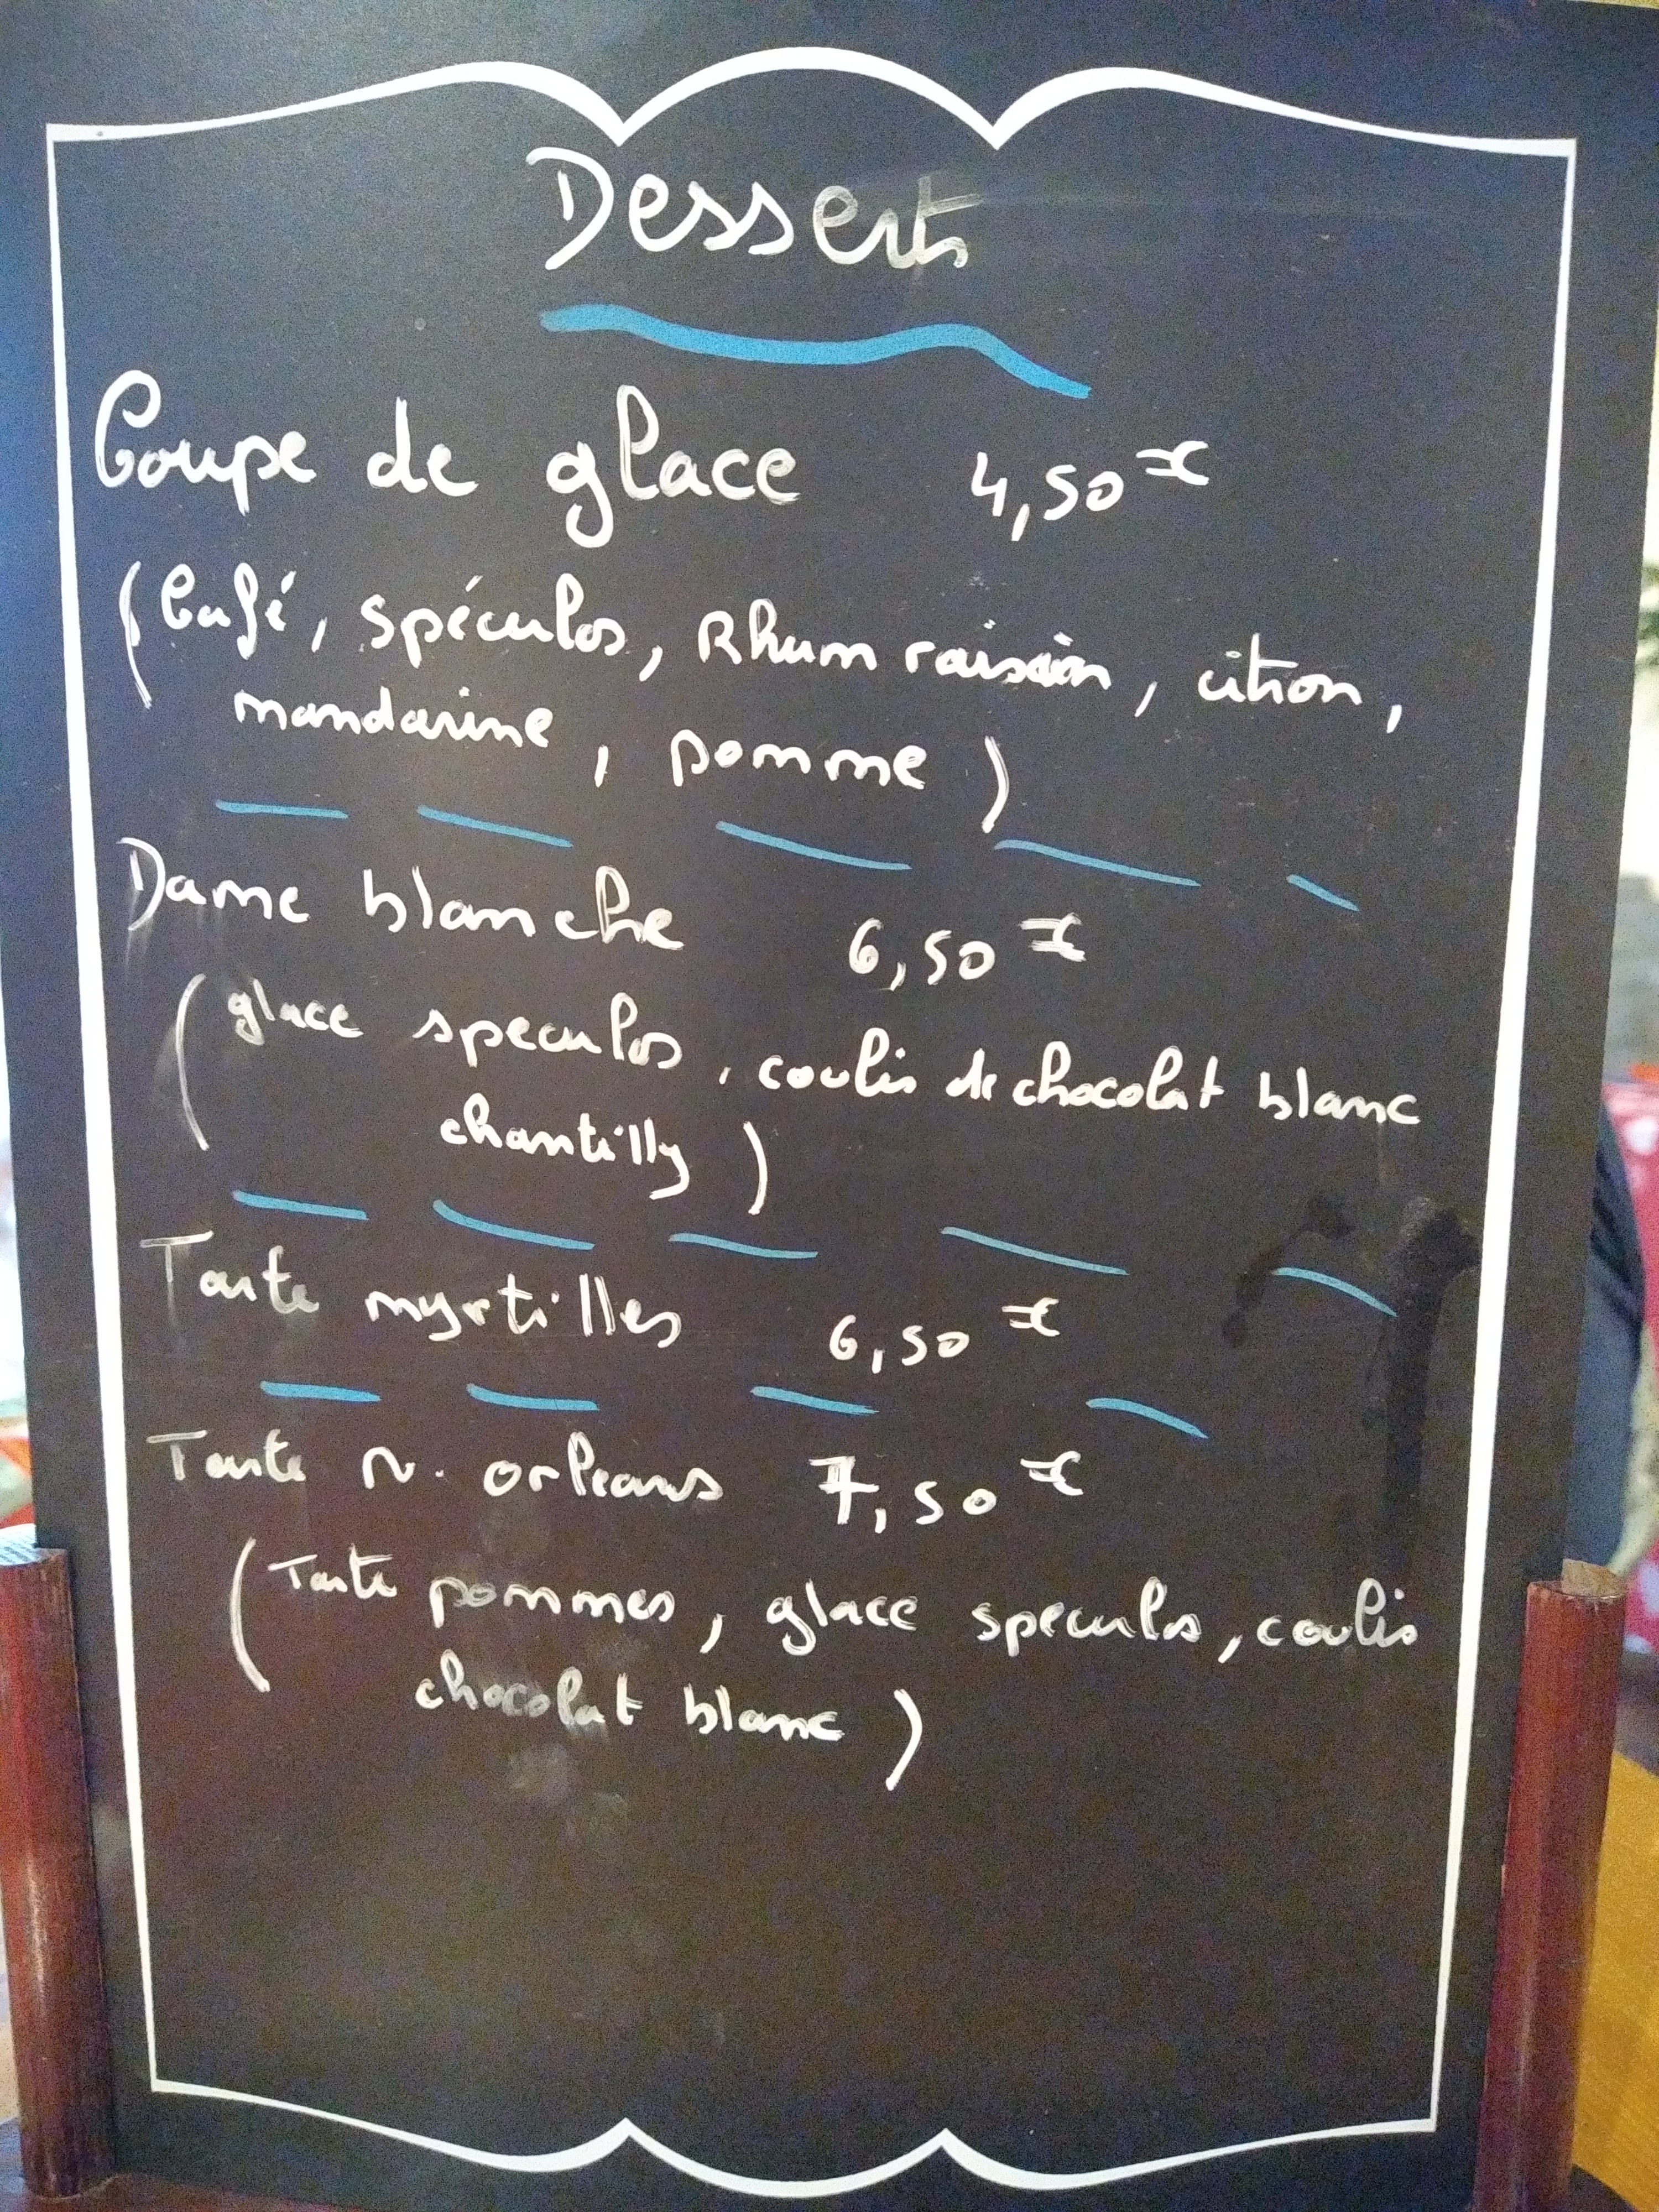 Desserts
Coupe de glace 4,50 €
(Café, spéculos, Rhum raisin, citron,
mandarine, pomme)
Dame blanche 6,50 €
(glace speculos, coulis de chocolat blanc
chantilly)
Tarte myrtilles 6,50 €
Tarte N. orleans 7,50 €
(Tarte pommes, glace speculos, coulis
chocolat blanc)